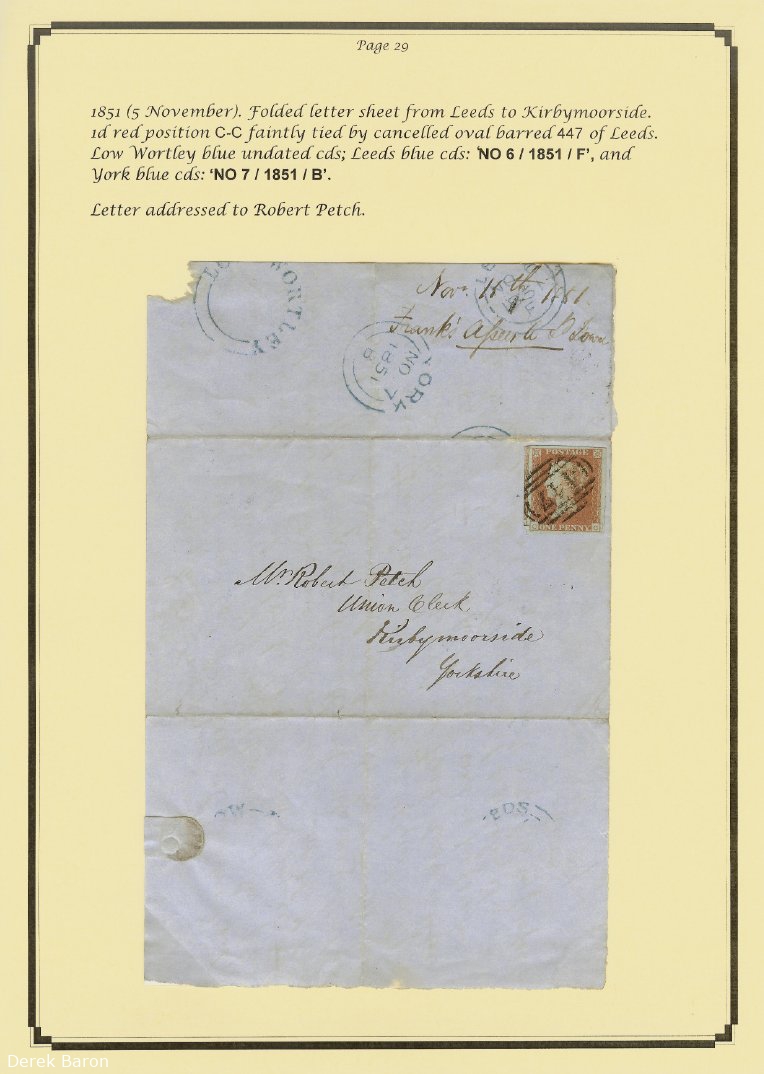 Page 29
1851 (5 November). Folded letter sheet from Leeds to Kirbymoorside.
1d red position C-C faintly tied by cancelled oval barred 447 of Leeds.
Low Wortley blue undated cds; Leeds blue cds: ‘NO 6 / 1851 / F’, and
York blue cds: ‘NO 7 / 1851 / B’.
Letter addressed to Robert Petch.
WORTLEY
YORK
NO 7
1851
B
POSTAGE
ONE PENNY
Mr Robert Petch
Union Clerk
Kirbymoorside
Yorkshire
EDS
Derek Baron